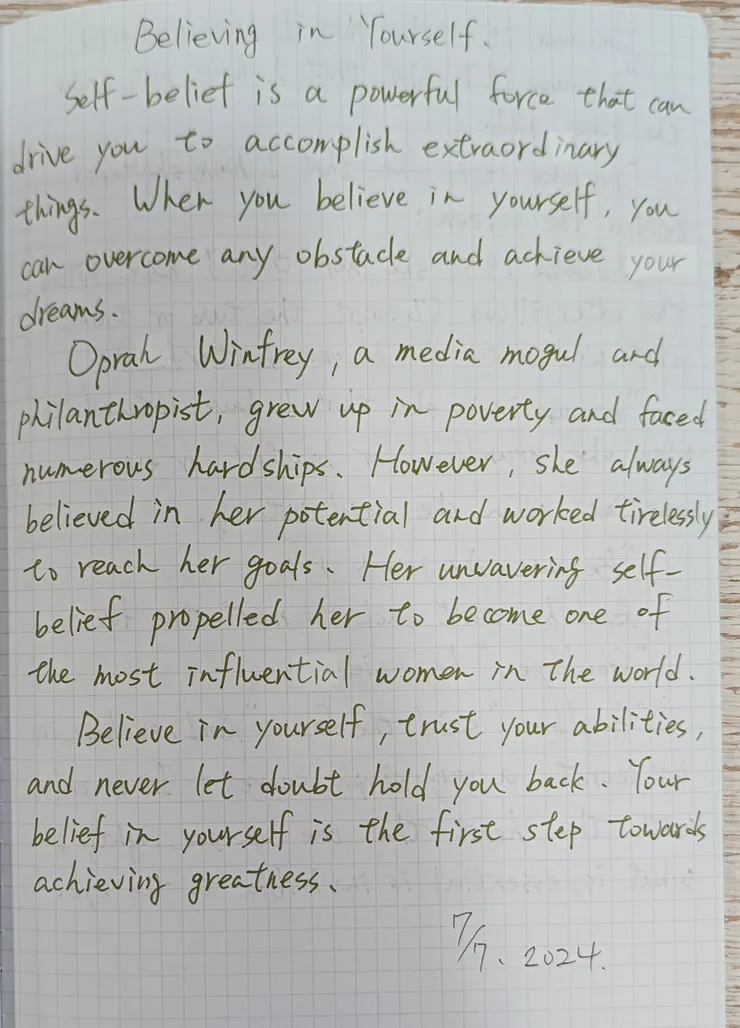 Believing in Yourself.
Self-belief is a powerful force that can
drive you to accomplish extraordinary
things. When you believe in yourself, you
can overcome any obstacle and achieve your
dreams.
Oprah Winfrey, a media mogul and
philanthropist, grew up in poverty and faced
numerous hardships. However, she always
believed in her potential and worked tirelessly
to reach her goals. Her unwavering self-
belief propelled her to become one of
the most influential women in the world.
Believe in yourself, trust your abilities,
and never let doubt hold you back. Your
belief in yourself is the first step towards
achieving greatness.
7/7. 2024.